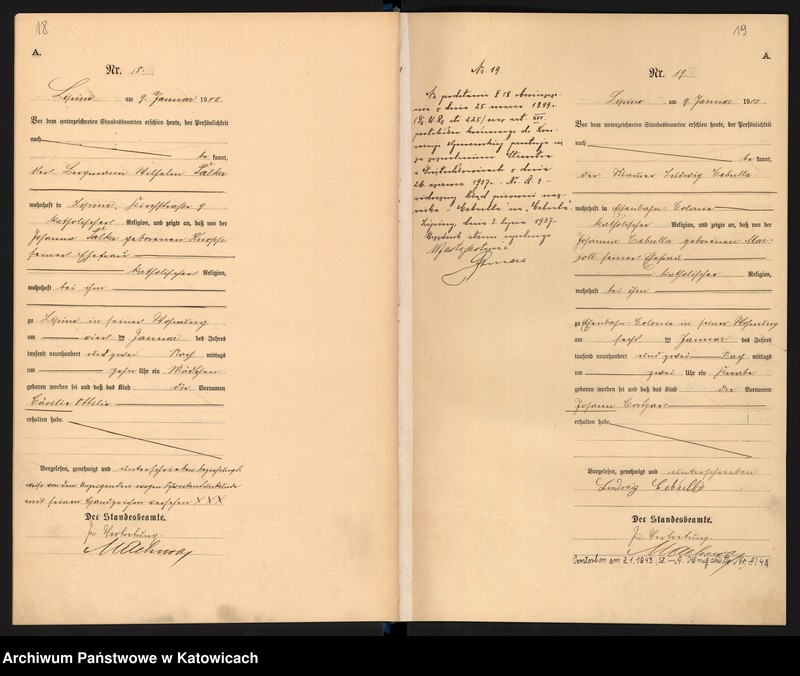 18
A.
Nr. 18.
Lipine am 9. Januar 1902.
Vor dem unterzeichneten Standesbeamten erschien heute, der Persönlichkeit
nach
be kannt,
der Bergmann Wilhelm Palka
wohnhaft in Lipine, Kirchstraße 9
katholischer Religion, und zeigte an, daß von der
Johanna Palka geborenen
seiner Ehefrau
katholischer Religion,
wohnhaft bei ihm
zu Lipine in seiner Wohnung
am vier ten Januar des Jahres
tausend neunhundert und zwei Nach mittags
um zehn Uhr ein Mädchen
geboren worden sei und daß das Kind die Vornamen
Cäcilie Ottilie
erhalten habe.
Vorgelesen, genehmigt und unterschrieben beziehungs
weise von dem Anzeigenden wegen Schreibensunkunde
mit seinem Handzeichen versehen XXX
Der Standesbeamte.
In Vertretung.
19
No 19.
Na podstawie § 18
z dnia 25. marca 1899.
z dnia
26. czerwca 1937. Nr. A. 9
"Cebulla" na "Cebula"
Lipiny, dnia 3. lipca 1937.
Urzędnik stanu cywilnego
W zastępstwie
A.
Nr. 19
Lipine am 9. Januar 1902.
Vor dem unterzeichneten Standesbeamten erschien heute, der Persönlichkeit
nach
be kannt,
der Maurer Ludwig Cebulla
wohnhaft in Eisenbahn-Colonie
katholischer Religion, und zeigte an, daß von der
Johanna Cebulla geborenen
seiner Ehefrau
katholischer Religion,
wohnhaft bei ihm
zu Eisenbahn-Colonie in seiner Wohnung
am sechs ten Januar des Jahres
tausend neunhundert und zwei Nach mittags
um zwei Uhr ein Knabe
geboren worden sei und daß das Kind die Vornamen
Johann
erhalten habe.
Vorgelesen, genehmigt und unterschrieben
Ludwig Cebulla
Der Standesbeamte.
In Vertretung.
Verstorben am 2.1.1943. St.-A. Königshütte Nr. 8/43
Archiwum Państwowe w Katowicach